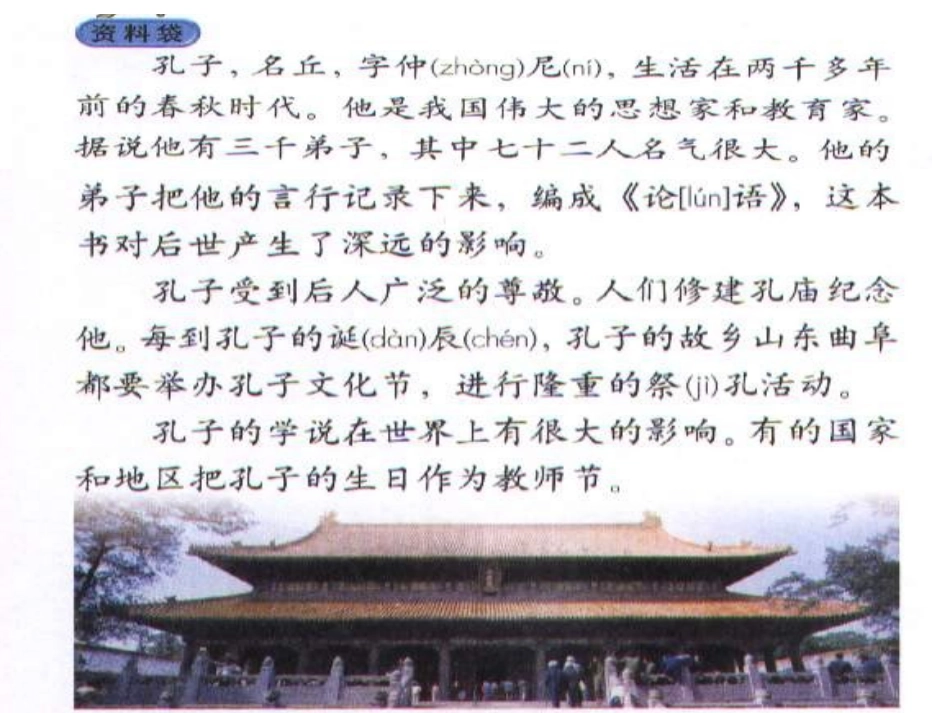 资料袋
孔子，名丘，字仲(zhòng)尼(ní)，生活在两千多年
前的春秋时代。他是我国伟大的思想家和教育家。
据说他有三千弟子，其中七十二人名气很大。他的
弟子把他的言行记录下来，编成《论[lún]语》，这本
书对后世产生了深远的影响。
孔子受到后人广泛的尊敬。人们修建孔庙纪念
他。每到孔子的诞(dàn)辰(chén)，孔子的故乡山东曲阜
都要举办孔子文化节，进行隆重的祭(jì)孔活动。
孔子的学说在世界上有很大的影响。有的国家
和地区把孔子的生日作为教师节。